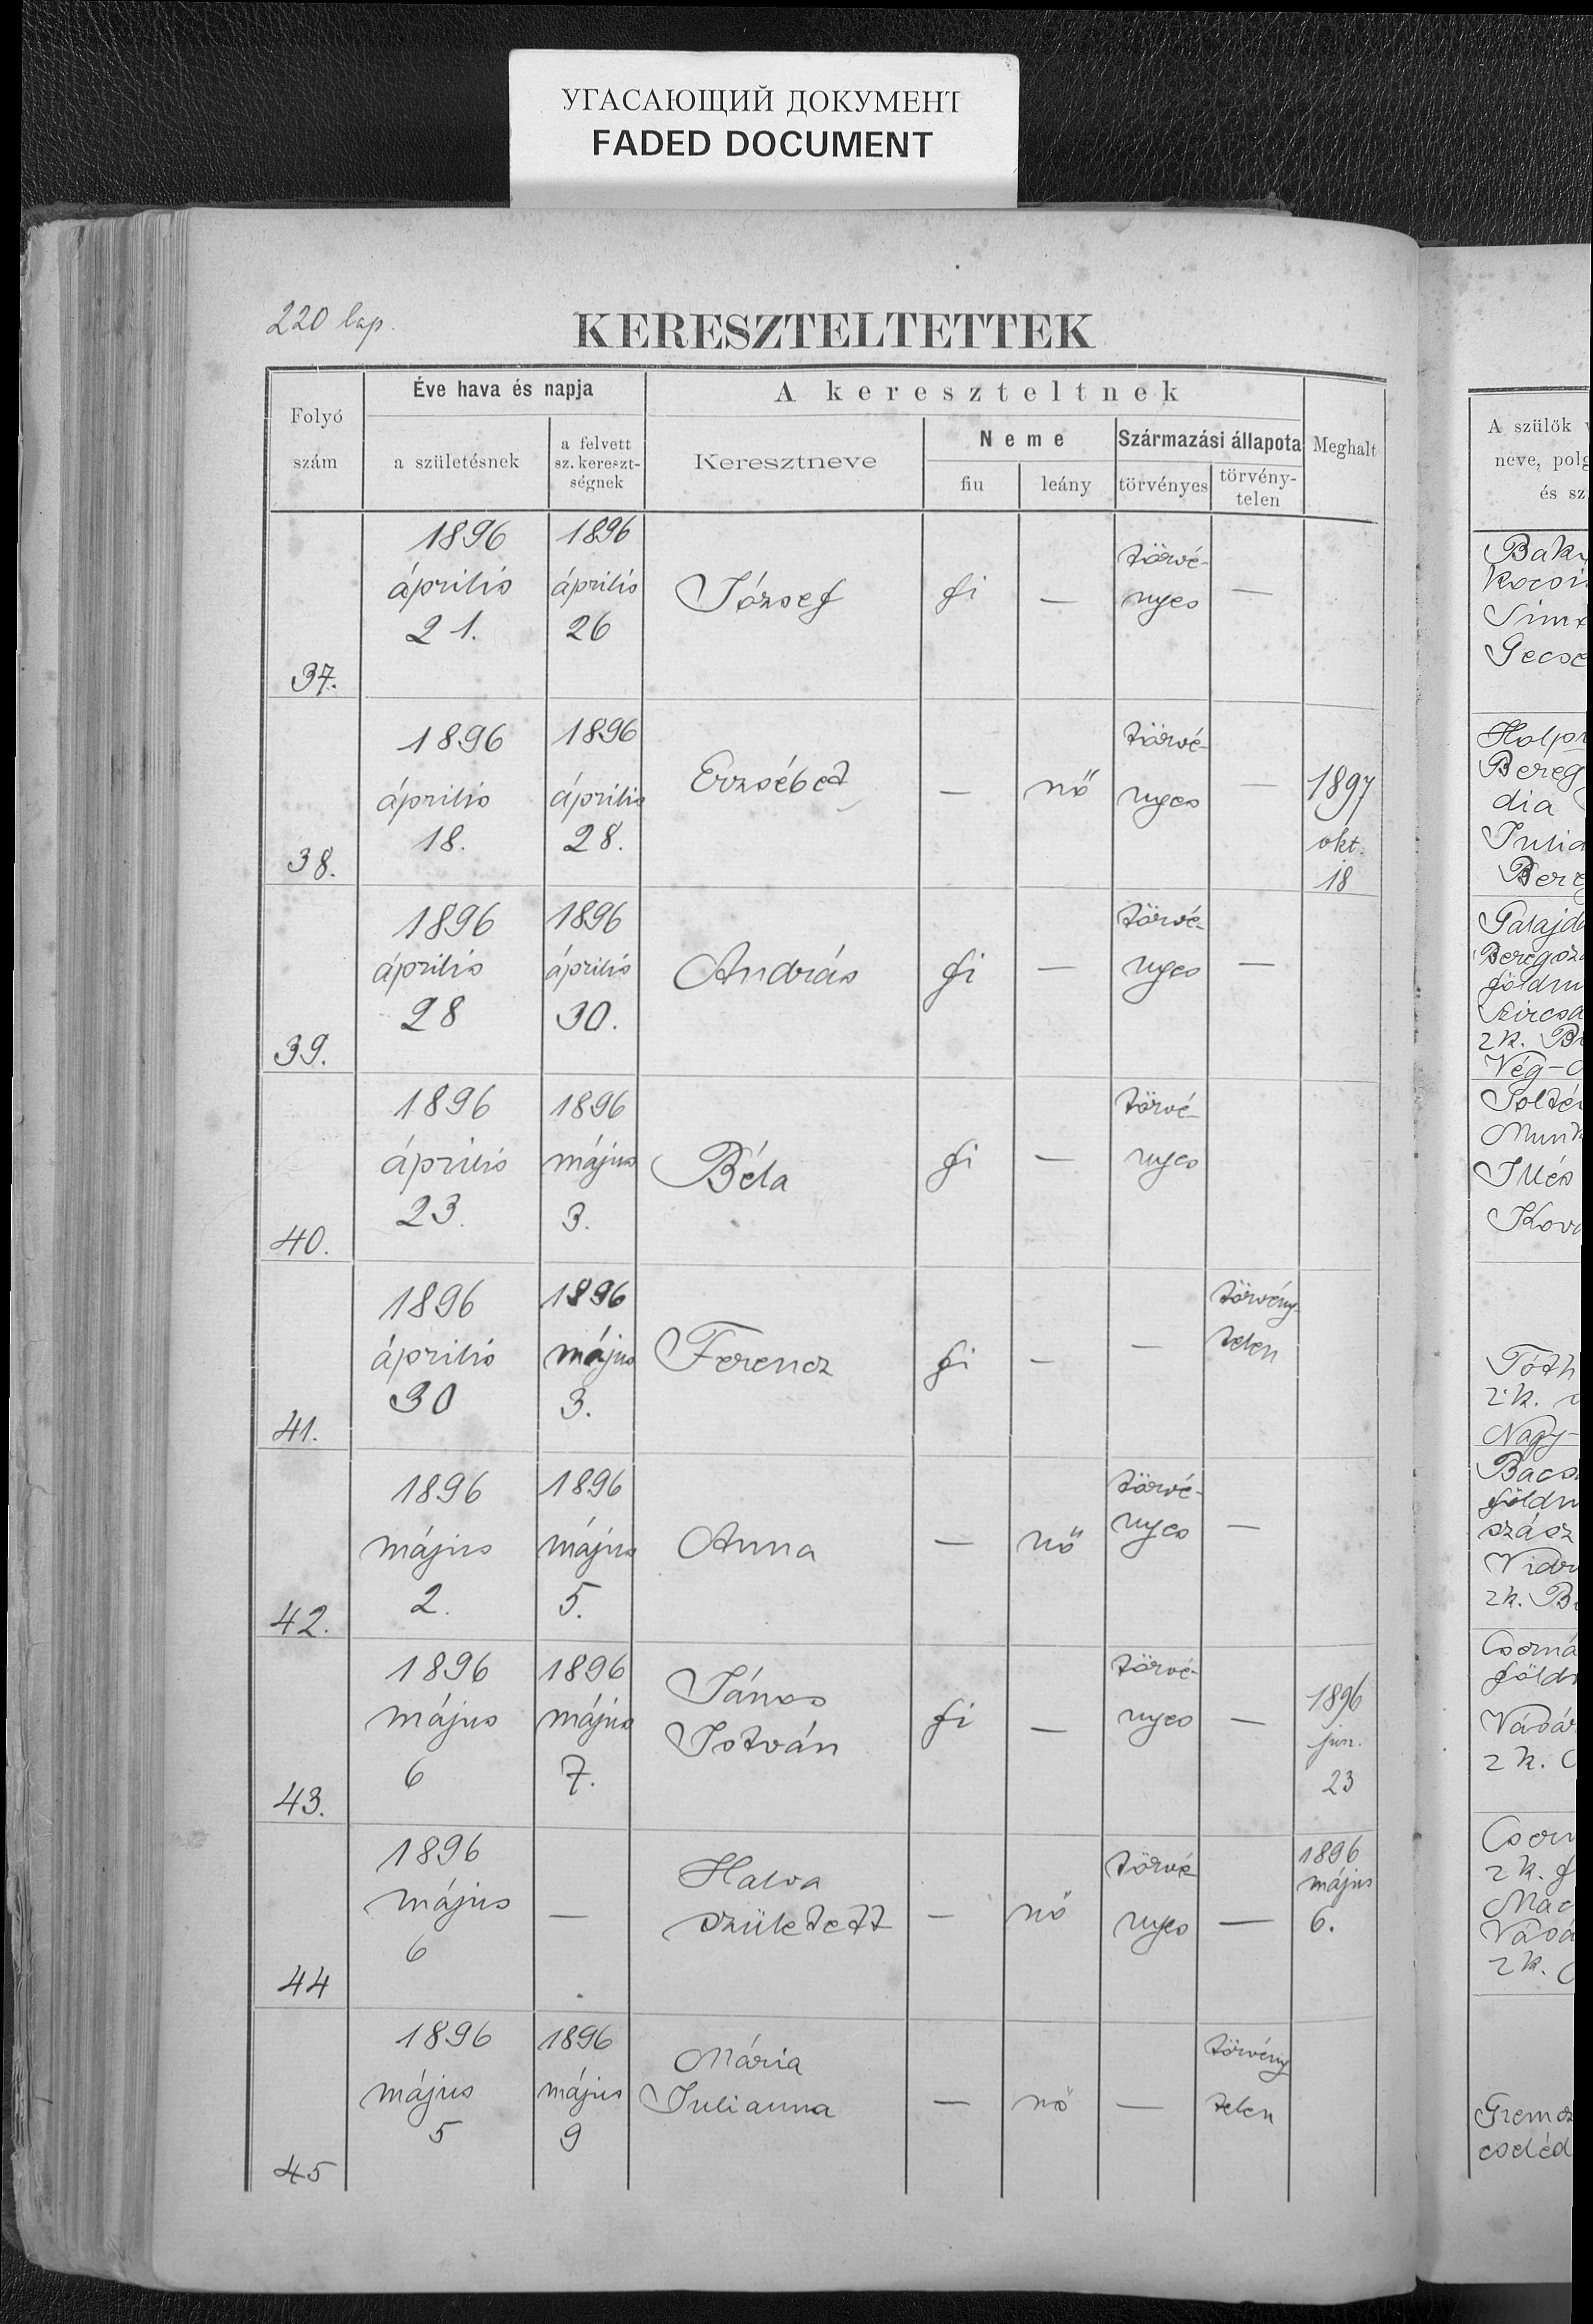 УГАСАЮЩИЙ ДОКУМЕНТ
FADED DOCUMENT
220 lap.
KERESZTELTETTEK
Folyó szám
Éve hava és napja
a születésnek
a felvett sz. kereszt-ségnek
A kereszteltnek
Keresztneve
Neme
fiu
leány
Származási állapota
törvényes
törvény-telen
Meghalt
37.
1896 április 21.
1896 április 26
József
fi
—
törvé-nyes
—
38.
1896 április 18.
1896 április 28.
Erzsébet
—
nő
törvé-nyes
—
1897 okt. 18
39.
1896 április 28
1896 április 30.
András
fi
—
törvé-nyes
—
40.
1896 április 23.
1896 május 3.
Béla
fi
—
törvé-nyes
41.
1896 április 30
1896 május 3.
Ferencz
fi
—
—
törvény-telen
42.
1896 május 2.
1896 május 5.
Anna
—
nő
törvé-nyes
—
43.
1896 május 6
1896 május 7.
János
István
fi
—
törvé-nyes
—
1896 jun. 23
44
1896 május 6
—
Halva
született
—
nő
törvé-nyes
—
1896 május 6.
45
1896 május 5
1896 május 9
Mária
Julianna
—
nő
—
törvény telen
A szülők
neve, polg
és sz
Földm
dia
zk.
Vég-
Munk
Illés
Tóth
zk.
Nagy-
földm
szász
zk. B
földm
zk.
zk. f
zk.
cseléd